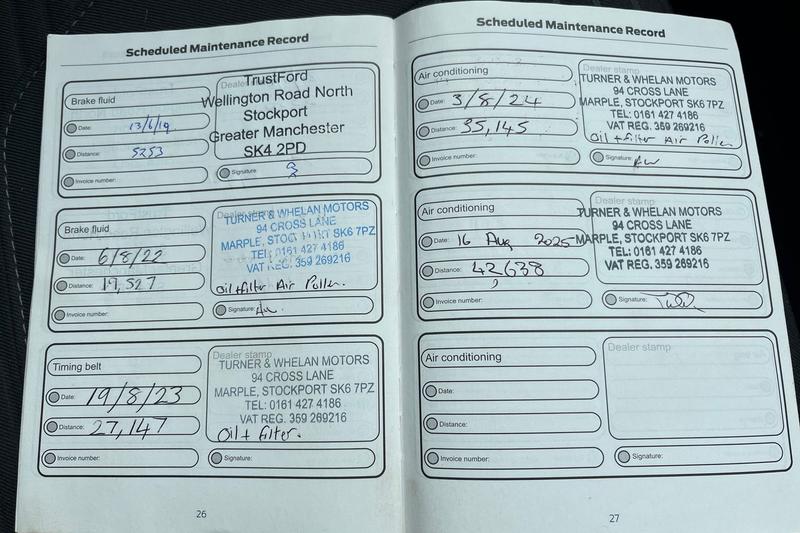 Scheduled Maintenance Record
Brake fluid
Date: 13/6/19
Distance: 5253
Invoice number:
Dealer
TrustFord
Wellington Road North
Stockport
Greater Manchester
SK4 2PD
Signature
Brake fluid
Date: 6/8/22
Distance: 19,527
Invoice number:
Dealer stamp
TURNER & WHELAN MOTORS
94 CROSS LANE
MARPLE, STOCKPORT SK6 7PZ
TEL: 0161 427 4186
VAT REG. 359 269216
Oil + filter Air Pollen.
Signature:
Timing belt
Date: 19/8/23
Distance: 27,147
Invoice number:
Dealer stamp
TURNER & WHELAN MOTORS
94 CROSS LANE
MARPLE, STOCKPORT SK6 7PZ
TEL: 0161 427 4186
VAT REG. 359 269216
Oil + filter.
Signature:
26
Scheduled Maintenance Record
Air conditioning
Date: 3/8/24
Distance: 35,145
Invoice number:
Dealer stamp
TURNER & WHELAN MOTORS
94 CROSS LANE
MARPLE, STOCKPORT SK6 7PZ
TEL: 0161 427 4186
VAT REG. 359 269216
Oil + filter Air Pollen
Signature:
Air conditioning
Date: 16 Aug 2025
Distance: 42,638
Invoice number:
TURNER & WHELAN MOTORS
94 CROSS LANE
MARPLE, STOCKPORT SK6 7PZ
TEL: 0161 427 4186
VAT REG. 359 269216
Signature:
Air conditioning
Date:
Distance:
Invoice number:
Dealer stamp
Signature:
27